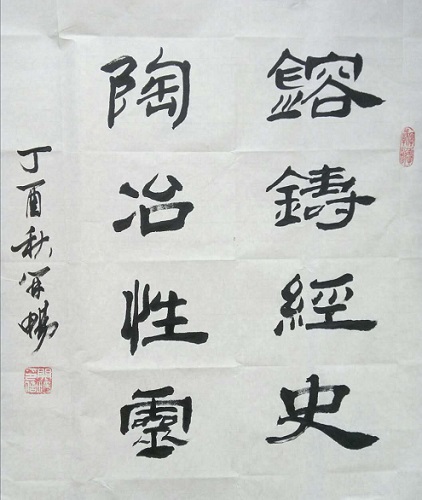 鎔鑄經史
陶冶性靈
丁酉秋